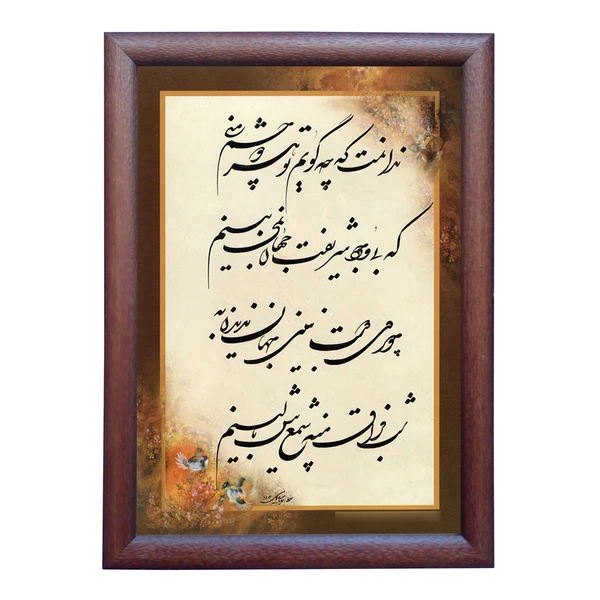 ندانمت که چه گویم تو هر دو چشم منی
که بی وجود شریفت جهان نمی بینم
چو روی دوست نبینی جهان ندیدن به
شب فراق منه شمع پیش بالینم